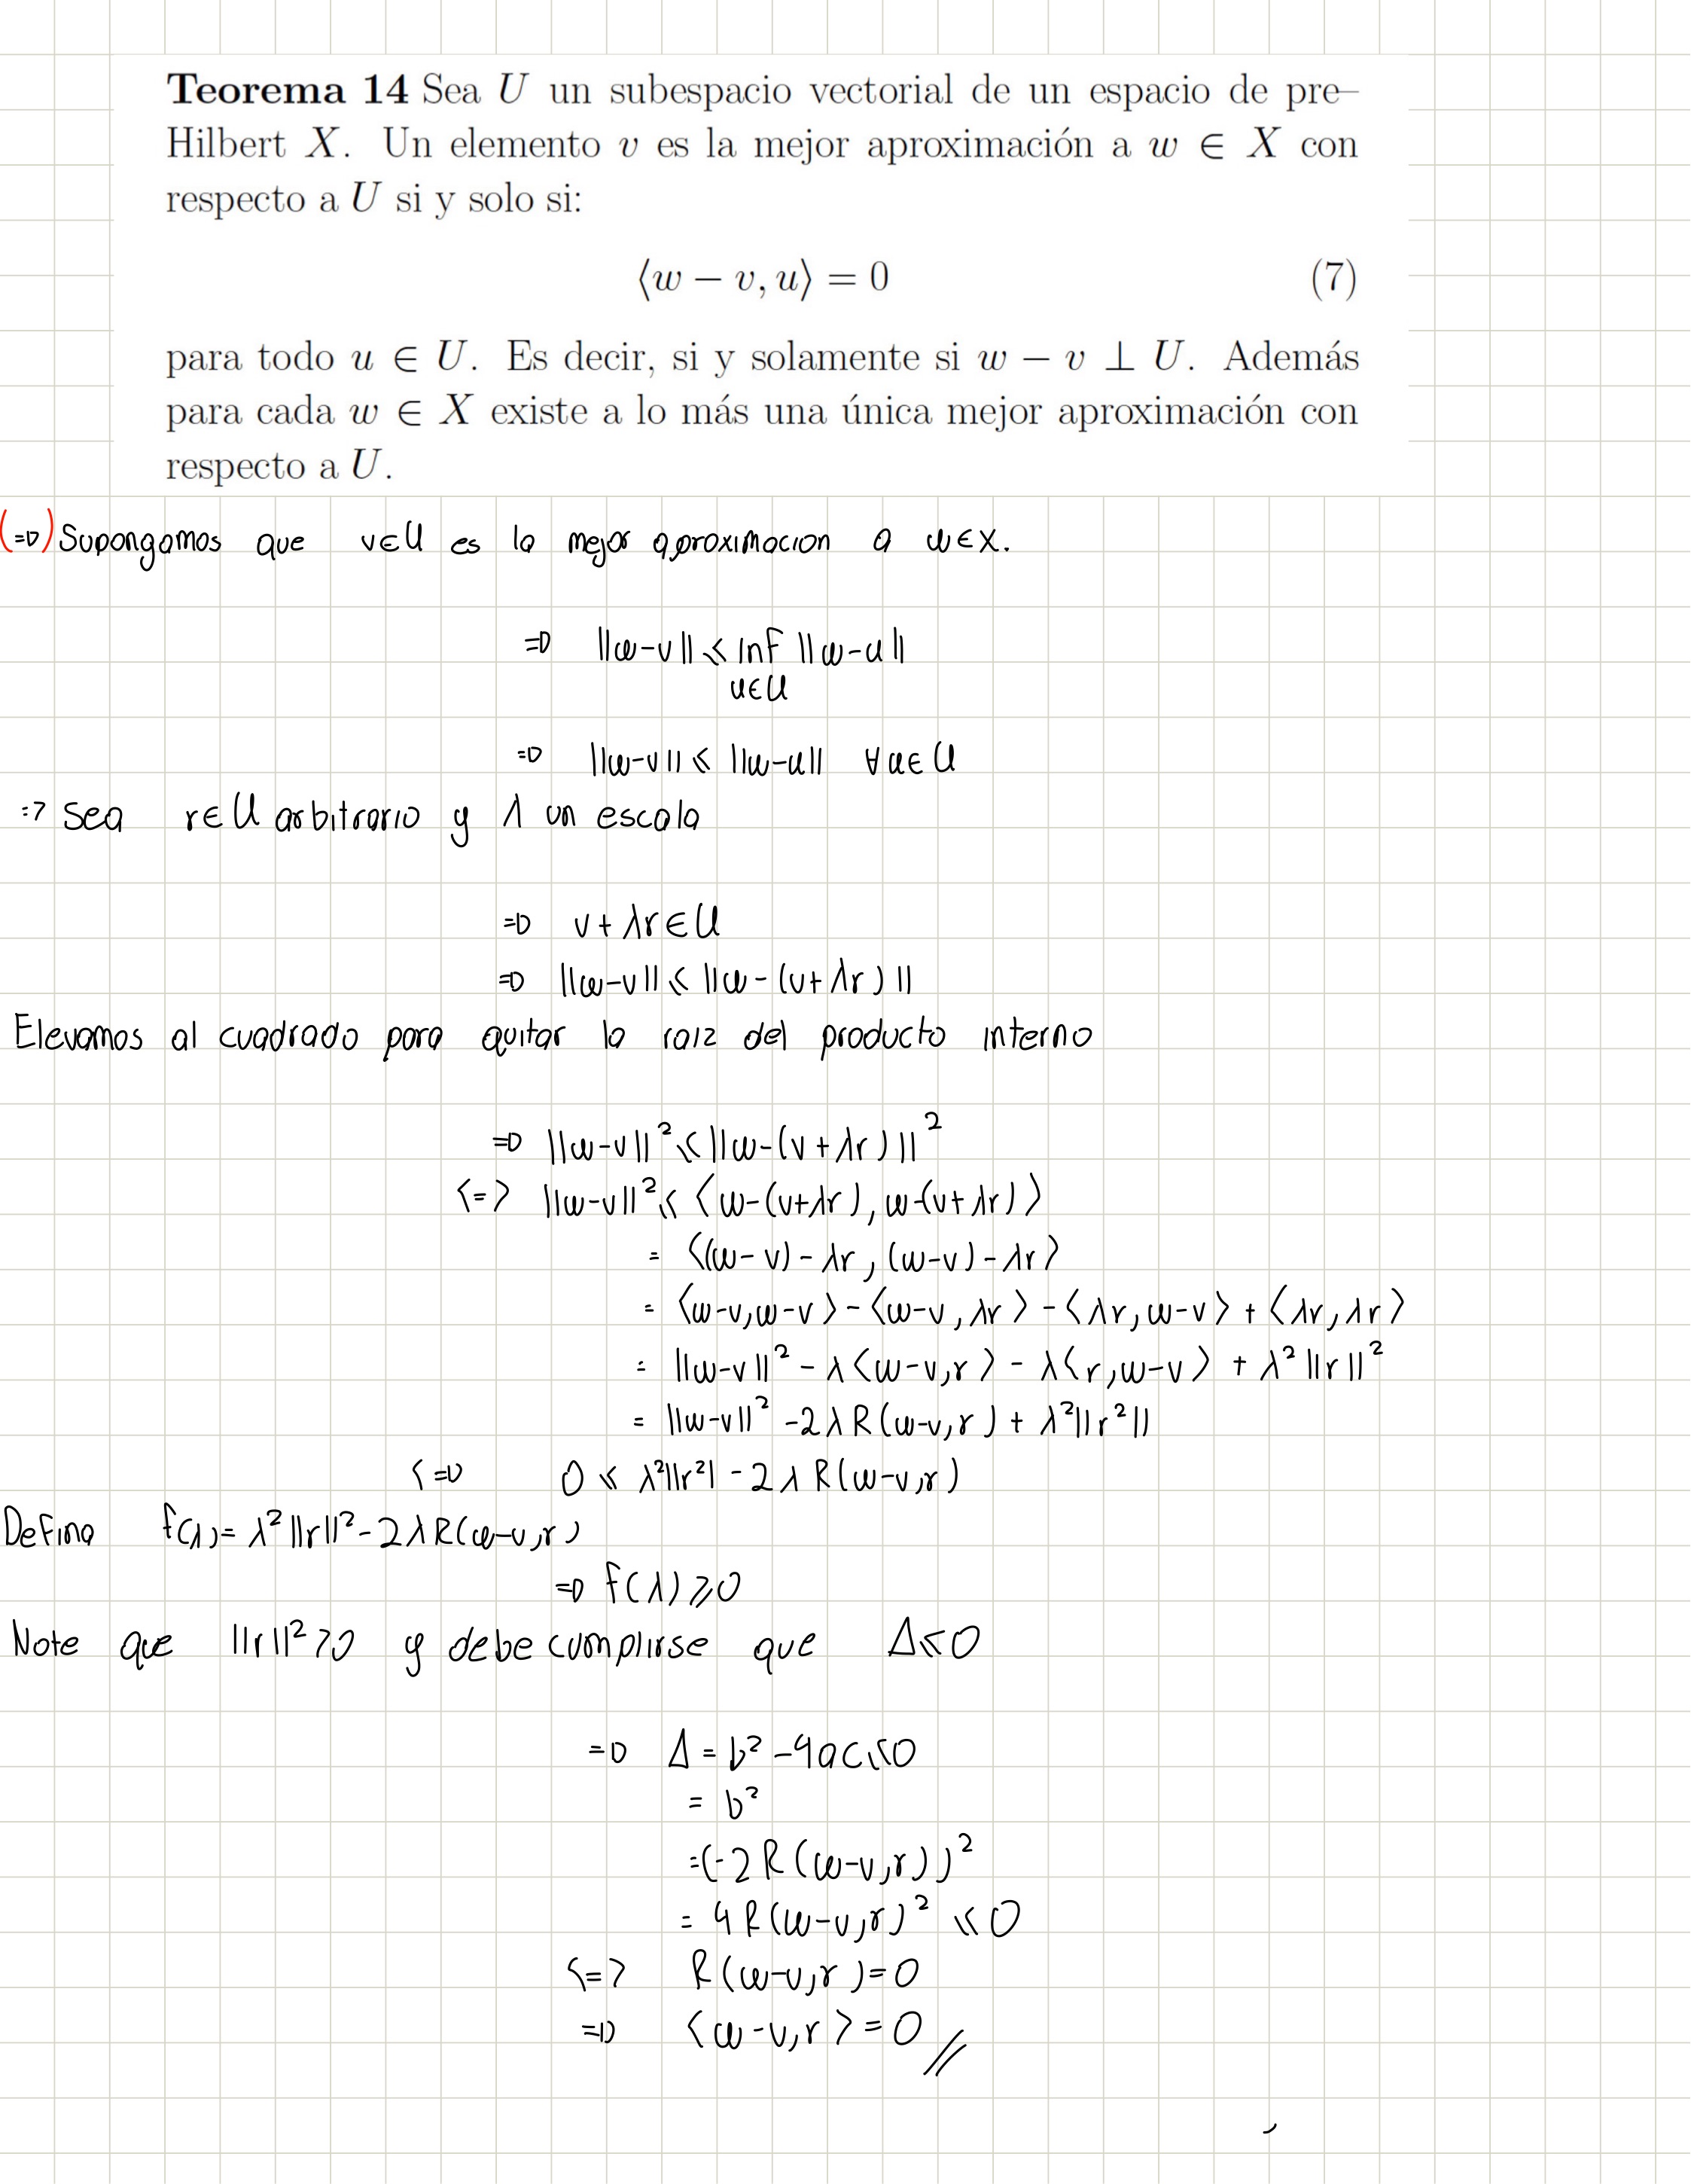 Teorema 14 Sea U un subespacio vectorial de un espacio de pre–
Hilbert X. Un elemento v es la mejor aproximación a w ∈ X con
respecto a U si y solo si:
⟨w − v, u⟩ = 0 (7)
para todo u ∈ U. Es decir, si y solamente si w − v ⊥ U. Además
para cada w ∈ X existe a lo más una única mejor aproximación con
respecto a U.
(⇒) Supongamos que v∈U es la mejor aproximacion a w∈X.
⇒ ||w-v|| ≤ inf ||w-u||
u∈U
⇒ ||w-v|| ≤ ||w-u|| ∀u∈U
⇒ Sea r∈U arbitrario y λ un escala
⇒ v+λr∈U
⇒ ||w-v|| ≤ ||w-(v+λr)||
Elevamos al cuadrado para quitar la raiz del producto interno
⇒ ||w-v||² ≤ ||w-(v+λr)||²
<=> ||w-v||² ≤ ⟨w-(v+λr), w-(v+λr)⟩
= ⟨(w-v)-λr, (w-v)-λr⟩
= ⟨w-v,w-v⟩ - ⟨w-v,λr⟩ - ⟨λr,w-v⟩ + ⟨λr,λr⟩
= ||w-v||² - λ⟨w-v,r⟩ - λ⟨r,w-v⟩ + λ²||r||²
= ||w-v||² -2λR(w-v,r) + λ²||r²||
<=> 0 ≤ λ²||r²| - 2λR(w-v,r)
Defina f(λ)= λ²||r||² - 2λR(w-v,r)
⇒ f(λ) ≥ 0
Note que ||r||² >0 y debe cumplirse que Δ≤0
⇒ Δ = b² - 4ac ≤ 0
= b²
= (-2R(w-v,r))²
= 4R(w-v,r)² ≤ 0
<=> R(w-v,r)=0
⇒ ⟨w-v,r⟩=0 //